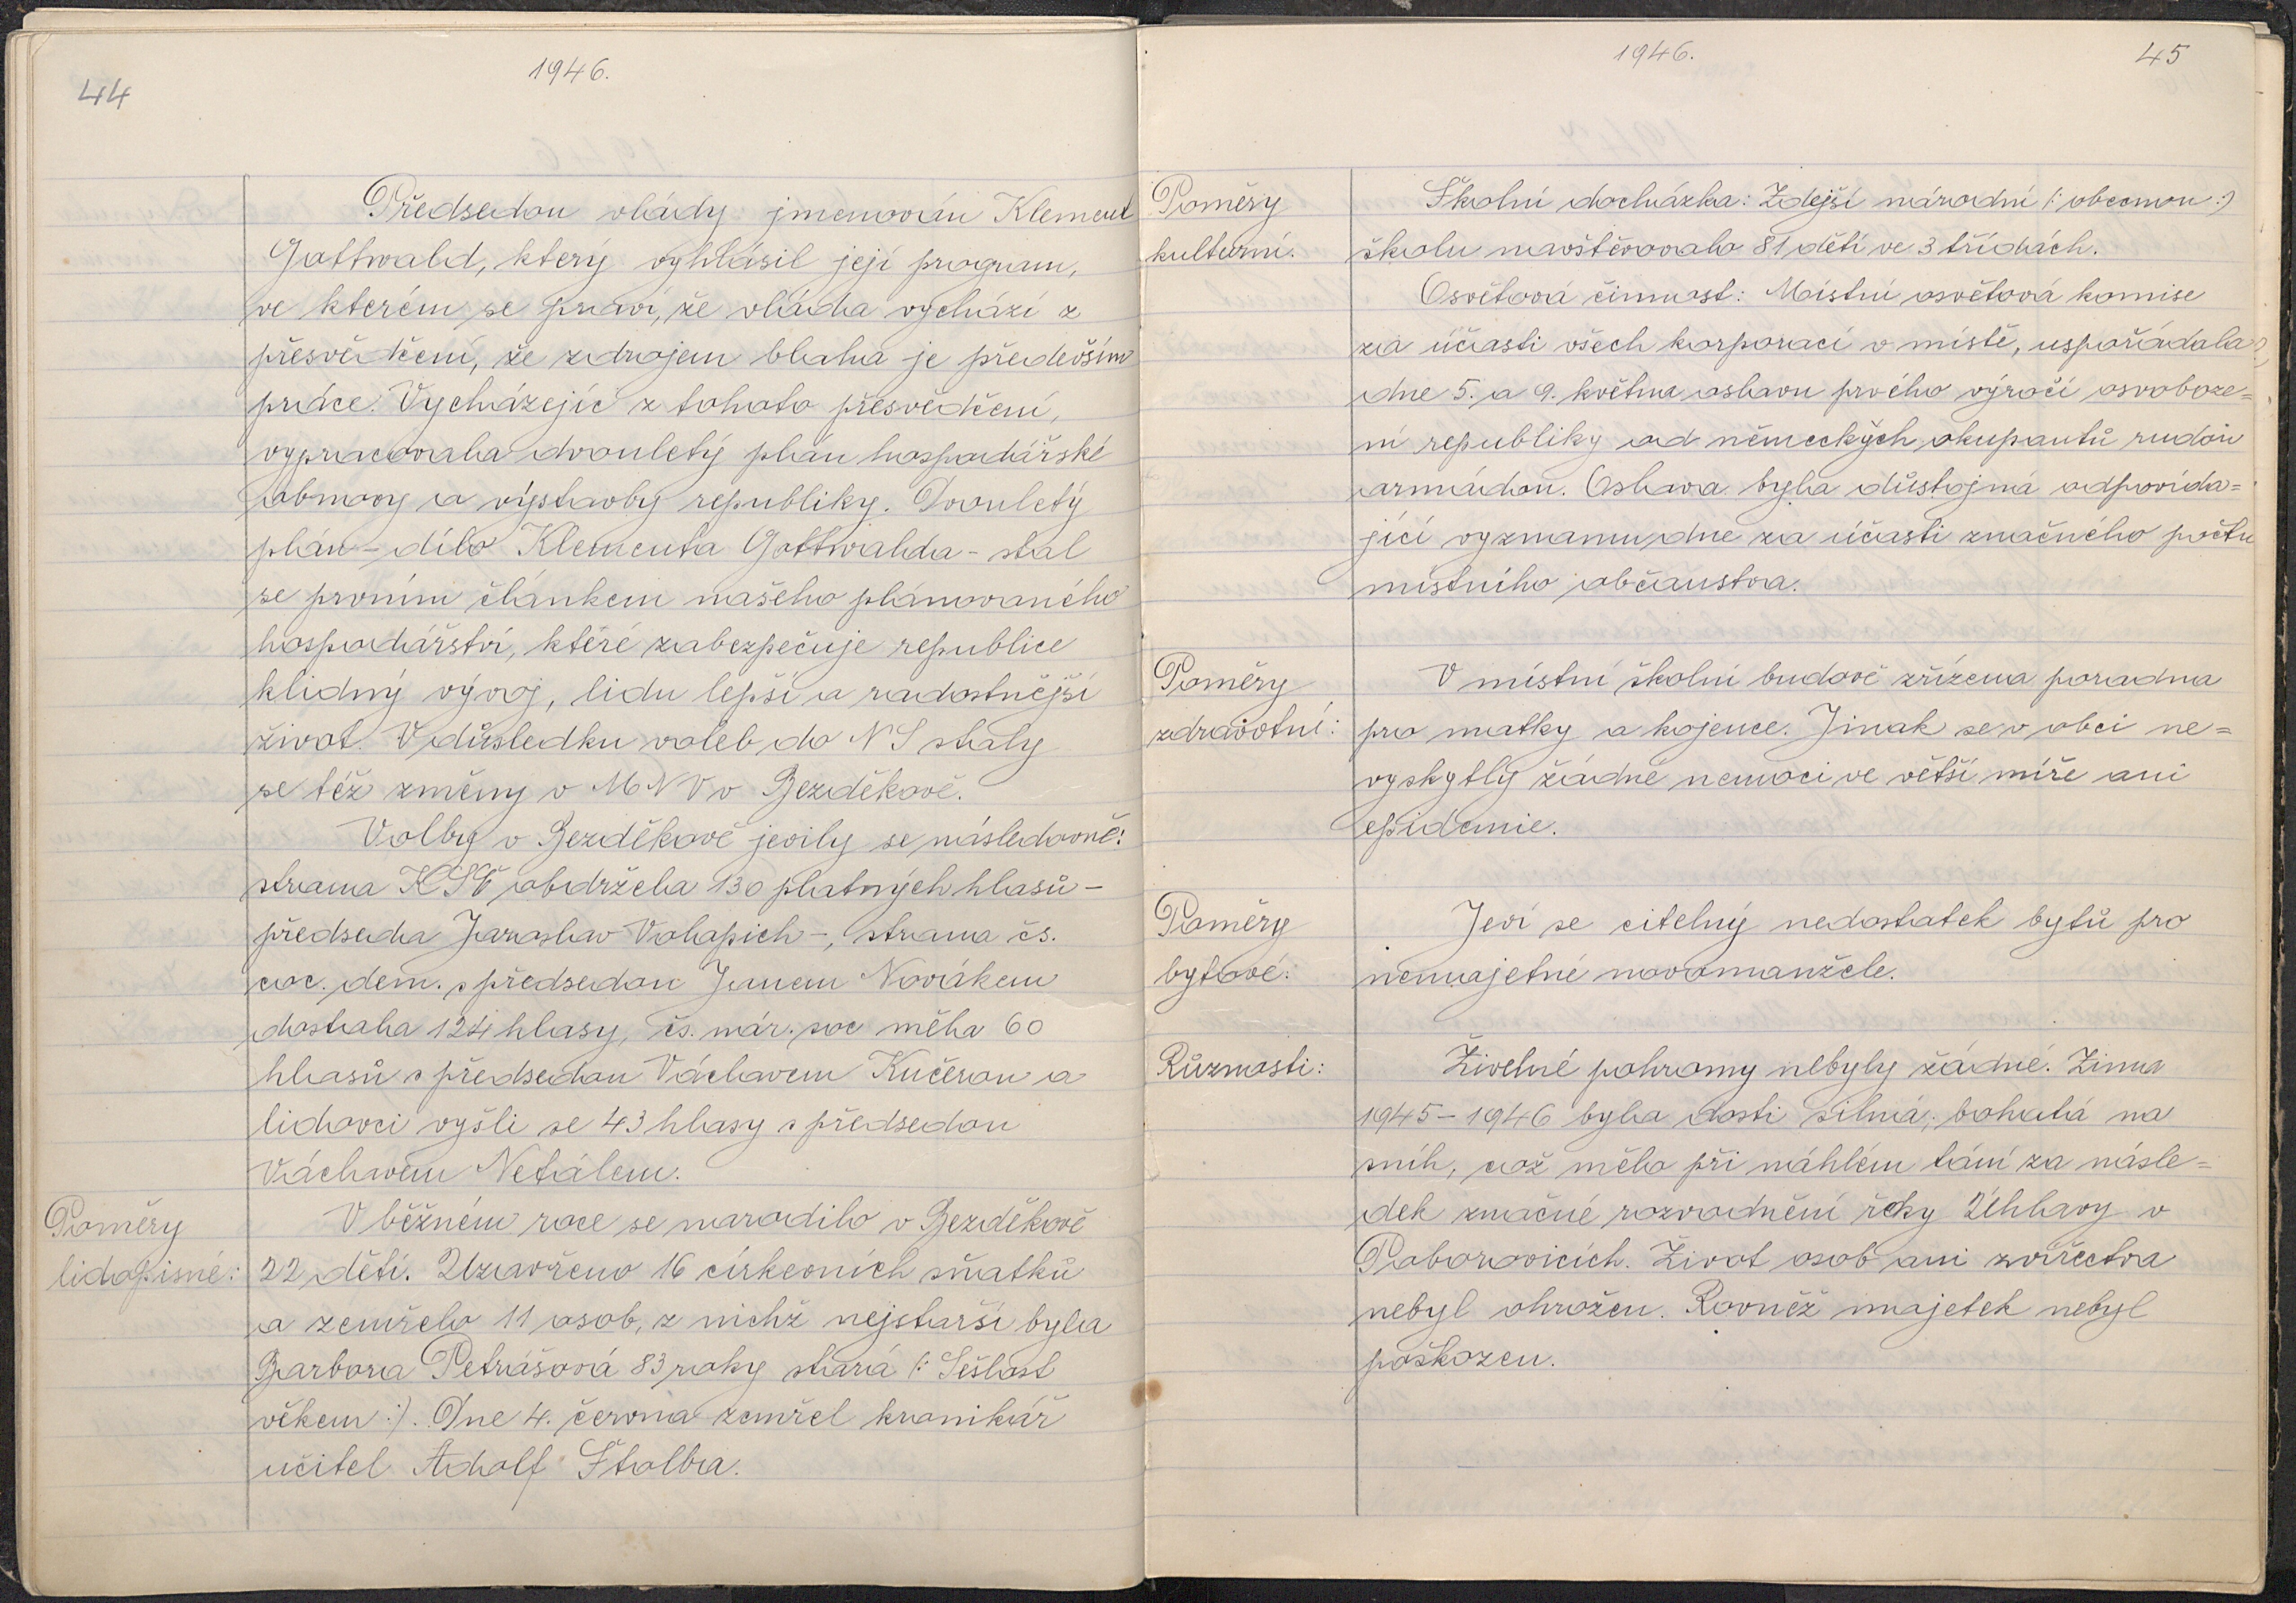 44
1946.
Předsedou vlády jmenován Klement
Gottwald, který vyhlásil její program,
ve kterém se praví, že vláda vychází z
přesvědčení, že zdrojem blaha je především
práce. Vycházejíc z tohoto přesvědčení,
vypracovala dvouletý plán hospodářské
obnovy a výstavby republiky. Dvouletý
plán - dílo Klementa Gottwalda - stal
se prvním článkem našeho plánovaného
hospodářství, které zabezpečuje republice
klidný vývoj, lidu lepší a radostnější
život. V důsledku voleb do NS staly
se též změny v MNV v Bezděkově.
Volby v Bezděkově jevily se následovně:
strana KSČ obdržela 130 platných hlasů -
předseda Jaroslav Volopich -, strana čs.
soc. dem. s předsedou Janem Novákem
dostala 124 hlasy, čs. nár. soc měla 60
hlasů s předsedou Václavem Kučerou a
lidovci vyšli se 43 hlasy s předsedou
Václavem Netálem.
Poměry
lidopisné:
V běžném roce se narodilo v Bezděkově
22 dětí. Uzavřeno 16 církevních sňatků
a zemřelo 11 osob, z nichž nejstarší byla
Barbora Petrášová 83 roky stará (: Sešlost
věkem :). Dne 4. června zemřel kronikář
učitel Adolf Štolba.
1946.
45
Poměry
kulturní.
Školní docházka: Zdejší národní (: obecnou :)
školu navštěvovalo 81 dětí ve 3 třídách.
Osvětová činnost: Místní osvětová komise
za účasti všech korporací v místě, uspořádala
dne 5. a 9. května oslavu prvého výročí osvoboze=
ní republiky od německých okupantů rudou
armádou. Oslava byla důstojná odpovída=
jící vyznamu dne za účasti značného počtu
místního občanstva.
Poměry
zdravotní:
V místní školní budově zřízena poradna
pro matky a kojence. Jinak se v obci ne=
vyskytly žádné nemoci ve větší míře ani
epidemie.
Poměry
bytové:
Jeví se citelný nedostatek bytů pro
nemajetné novomanžele.
Různosti:
Živelné pohromy nebyly žádné. Zima
1945 - 1946 byla dosti silná, bohatá na
sníh, což mělo při náhlém tání za násle=
dek značné rozvodnění řeky Úhlavy v
Poborovicích. Život osob ani zvířectva
nebyl ohrožen. Rovněž majetek nebyl
poškozen.